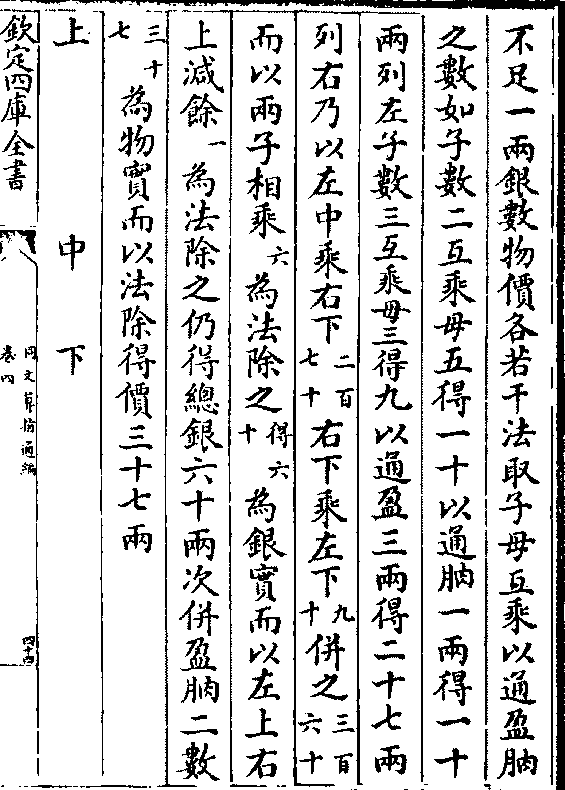 不足一兩銀數物價各若干法取子母互乘以通盈朒
之數如子數二互乘母五得一十以通朒一兩得一十
兩列左子數三互乘母三得九以通盈三兩得二十七兩
列右乃以左中乘右下二百七十右下乘左下九十併之三百六十
而以兩子相乘六為法除之得六十為銀實而以左上右
上減餘一為法除之仍得總銀六十兩次併盈朒二數
三十七為物實而以法除得價三十七兩
上 中 下
欽定四庫全書
同文算指通編
卷四
四十四